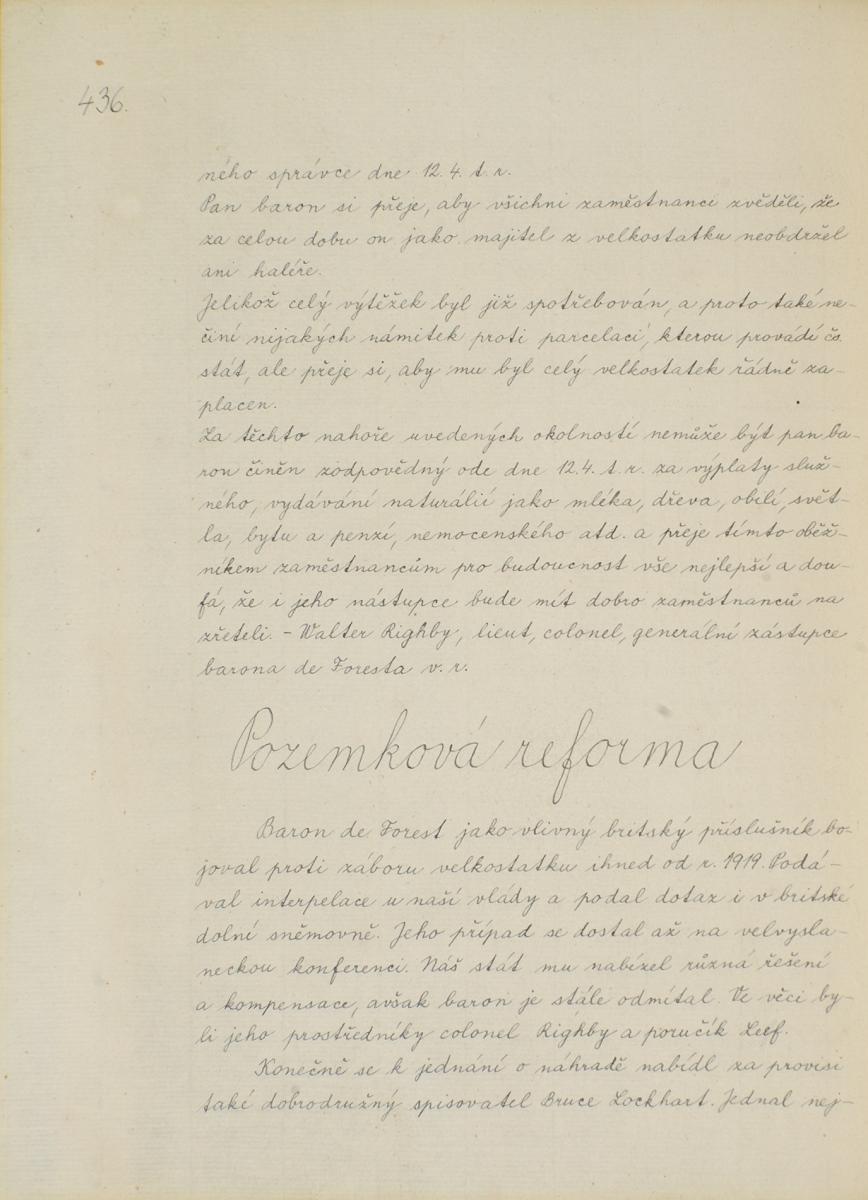 436.
ného správce dne 12. 4. t. r.
Pan baron si přeje, aby všichni zaměstnanci zvěděli, že
za celou dobu on jako majitel z velkostatku neobdržel
ani haléře.
Jelikož celý výtěžek byl již spotřebován, a proto také ne-
činí nijakých námitek proti parcelaci, kterou provádí čs.
stát, ale přeje si, aby mu byl celý velkostatek řádně za-
placen.
Za těchto nahoře uvedených okolností nemůže být pan ba-
ron činěn zodpovědný ode dne 12. 4. t. r. za výplaty služ-
ného, vydávání naturálií jako mléka, dřeva, obilí, svět-
la, bytu a penzí, nemocenského atd. a přeje tímto oběž-
níkem zaměstnancům pro budoucnost vše nejlepší a dou-
fá, že i jeho nástupce bude mít dobro zaměstnanců na
zřeteli. - Walter Righby, lieut, colonel, generální zástupce
barona de Foresta v. r.
Pozemková reforma
Baron de Forest jako vlivný britský příslušník bo-
joval proti záboru velkostatku ihned od r. 1919. Podá-
val interpelace u naší vlády a podal dotaz i v britské
dolní sněmovně. Jeho případ se dostal až na velvysla-
neckou konferenci. Náš stát mu nabízel různá řešení
a kompensace, avšak baron je stále odmítal. Ve věci by-
li jeho prostředníky colonel Righby a poručík Leef.
Konečně se k jednání o náhradě nabídl za provisi
také dobrodružný spisovatel Bruce Lockhart. Jednal nej-